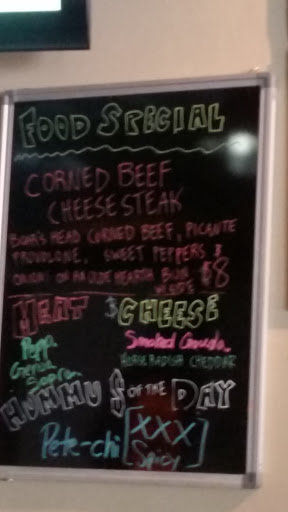 FOOD SPECIAL
CORNED BEEF
CHEESESTEAK
BOAR'S HEAD CORNED BEEF, PICANTE
PROVOLONE, SWEET PEPPERS &
ONION ON AN OLDE HEARTH BUN $8
W/SIDE
MEAT & CHEESE
Pepp. Smoked Gouda
Genoa HORSERADISH CHEDDAR
Sopro.
HUMMUS OF THE DAY
Pete-chi [XXX
Spicy]